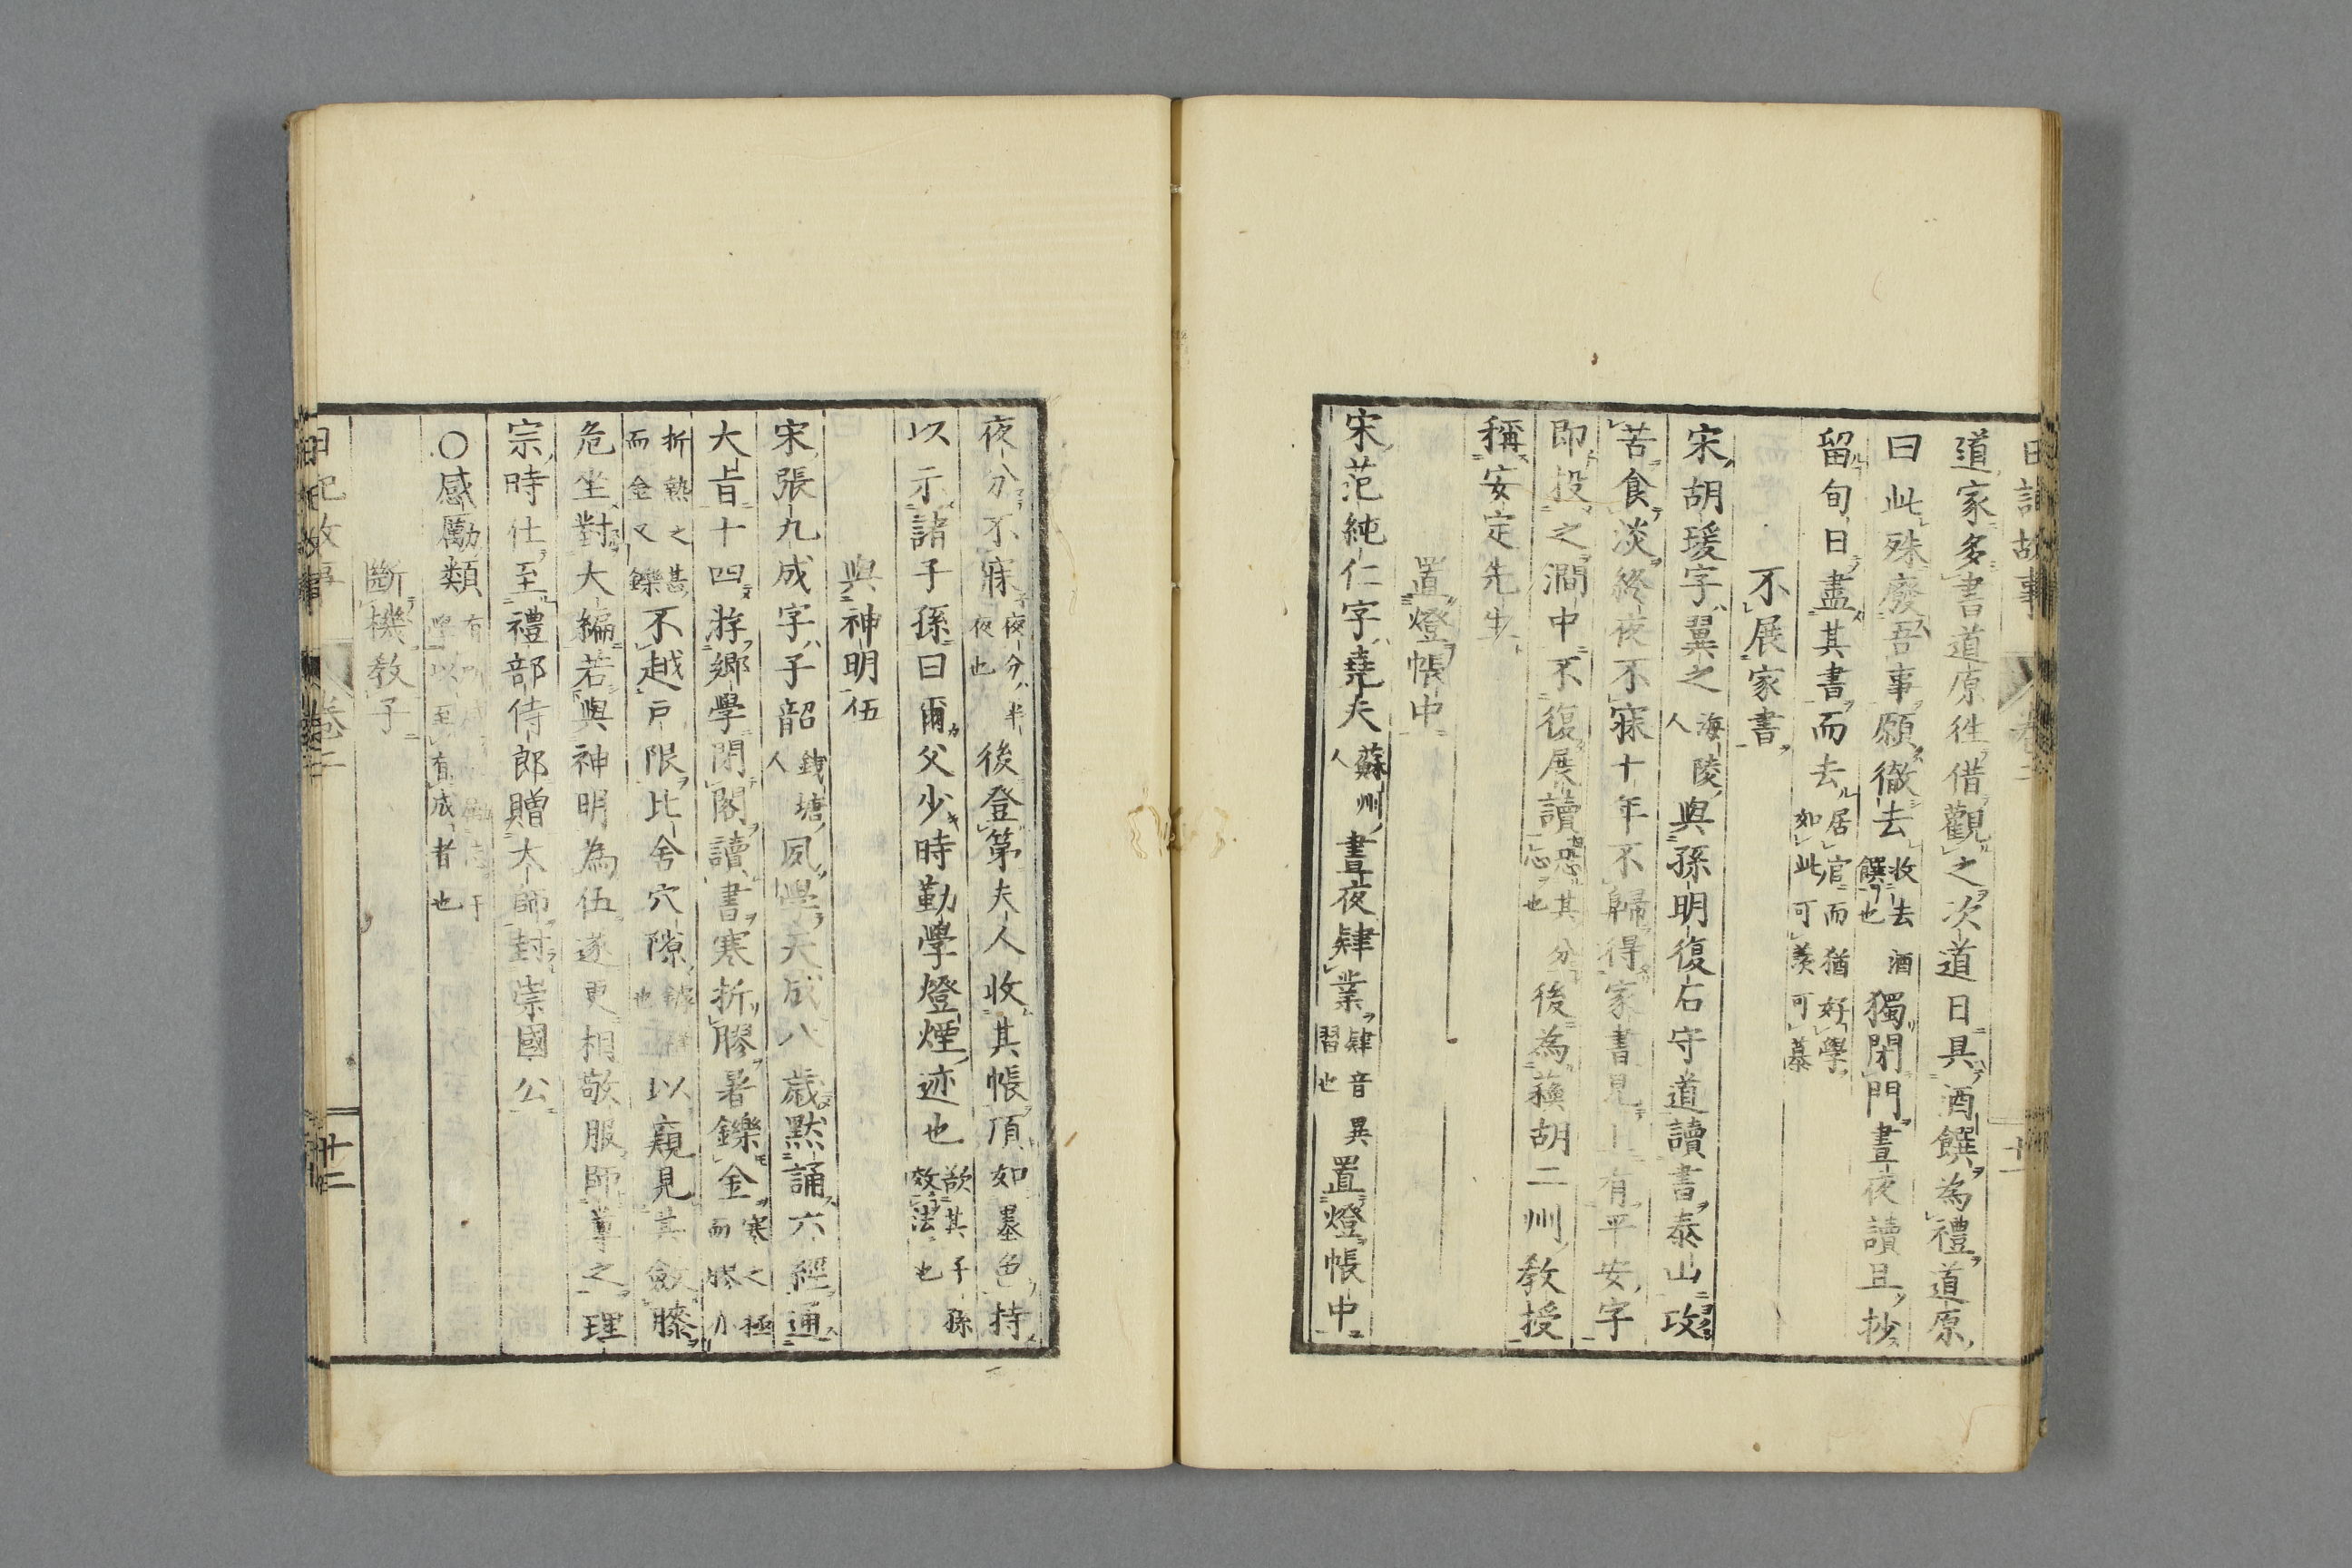 日記故事 卷二 十一
道家多書道原徃借觀之次道日具酒饌為禮道原
曰此殊廢吾事願徹去收去酒饌也獨閉門晝夜讀且抄
留旬日盡其書而去居官而猶好學如此可羨可慕
不展家書
宋胡瑗字翼之海陵人與孫明復石守道讀書泰山攻
苦食淡終夜不寐十年不歸得家書見上有平安字
即投之澗中不復展讀恐其分心也後為蘓胡二州教授
稱安定先生
置燈帳中
宋范純仁字堯夫蘇州人晝夜肄業肄音異習也置燈帳中
夜分不寐夜分半夜也後登第夫人收其帳頂如墨色持
以示諸子孫曰爾父少時勤學燈煙迹也欲其子孫效法也
與神明伍
宋張九成字子韶錢塘人夙學天成八歲默誦六經通
大旨十四游鄉學閉閣讀書寒折膠暑鑠金寒之極而膠小
折熱之甚而金又鑠不越戶限比舍穴隙以窺見其斂膝
危坐對大編若與神明為伍遂更相敬服師尊之理
宗時仕至禮部侍郎贈太師封崇國公
〇感勵類
斷機教子
日記故事 卷二 十二